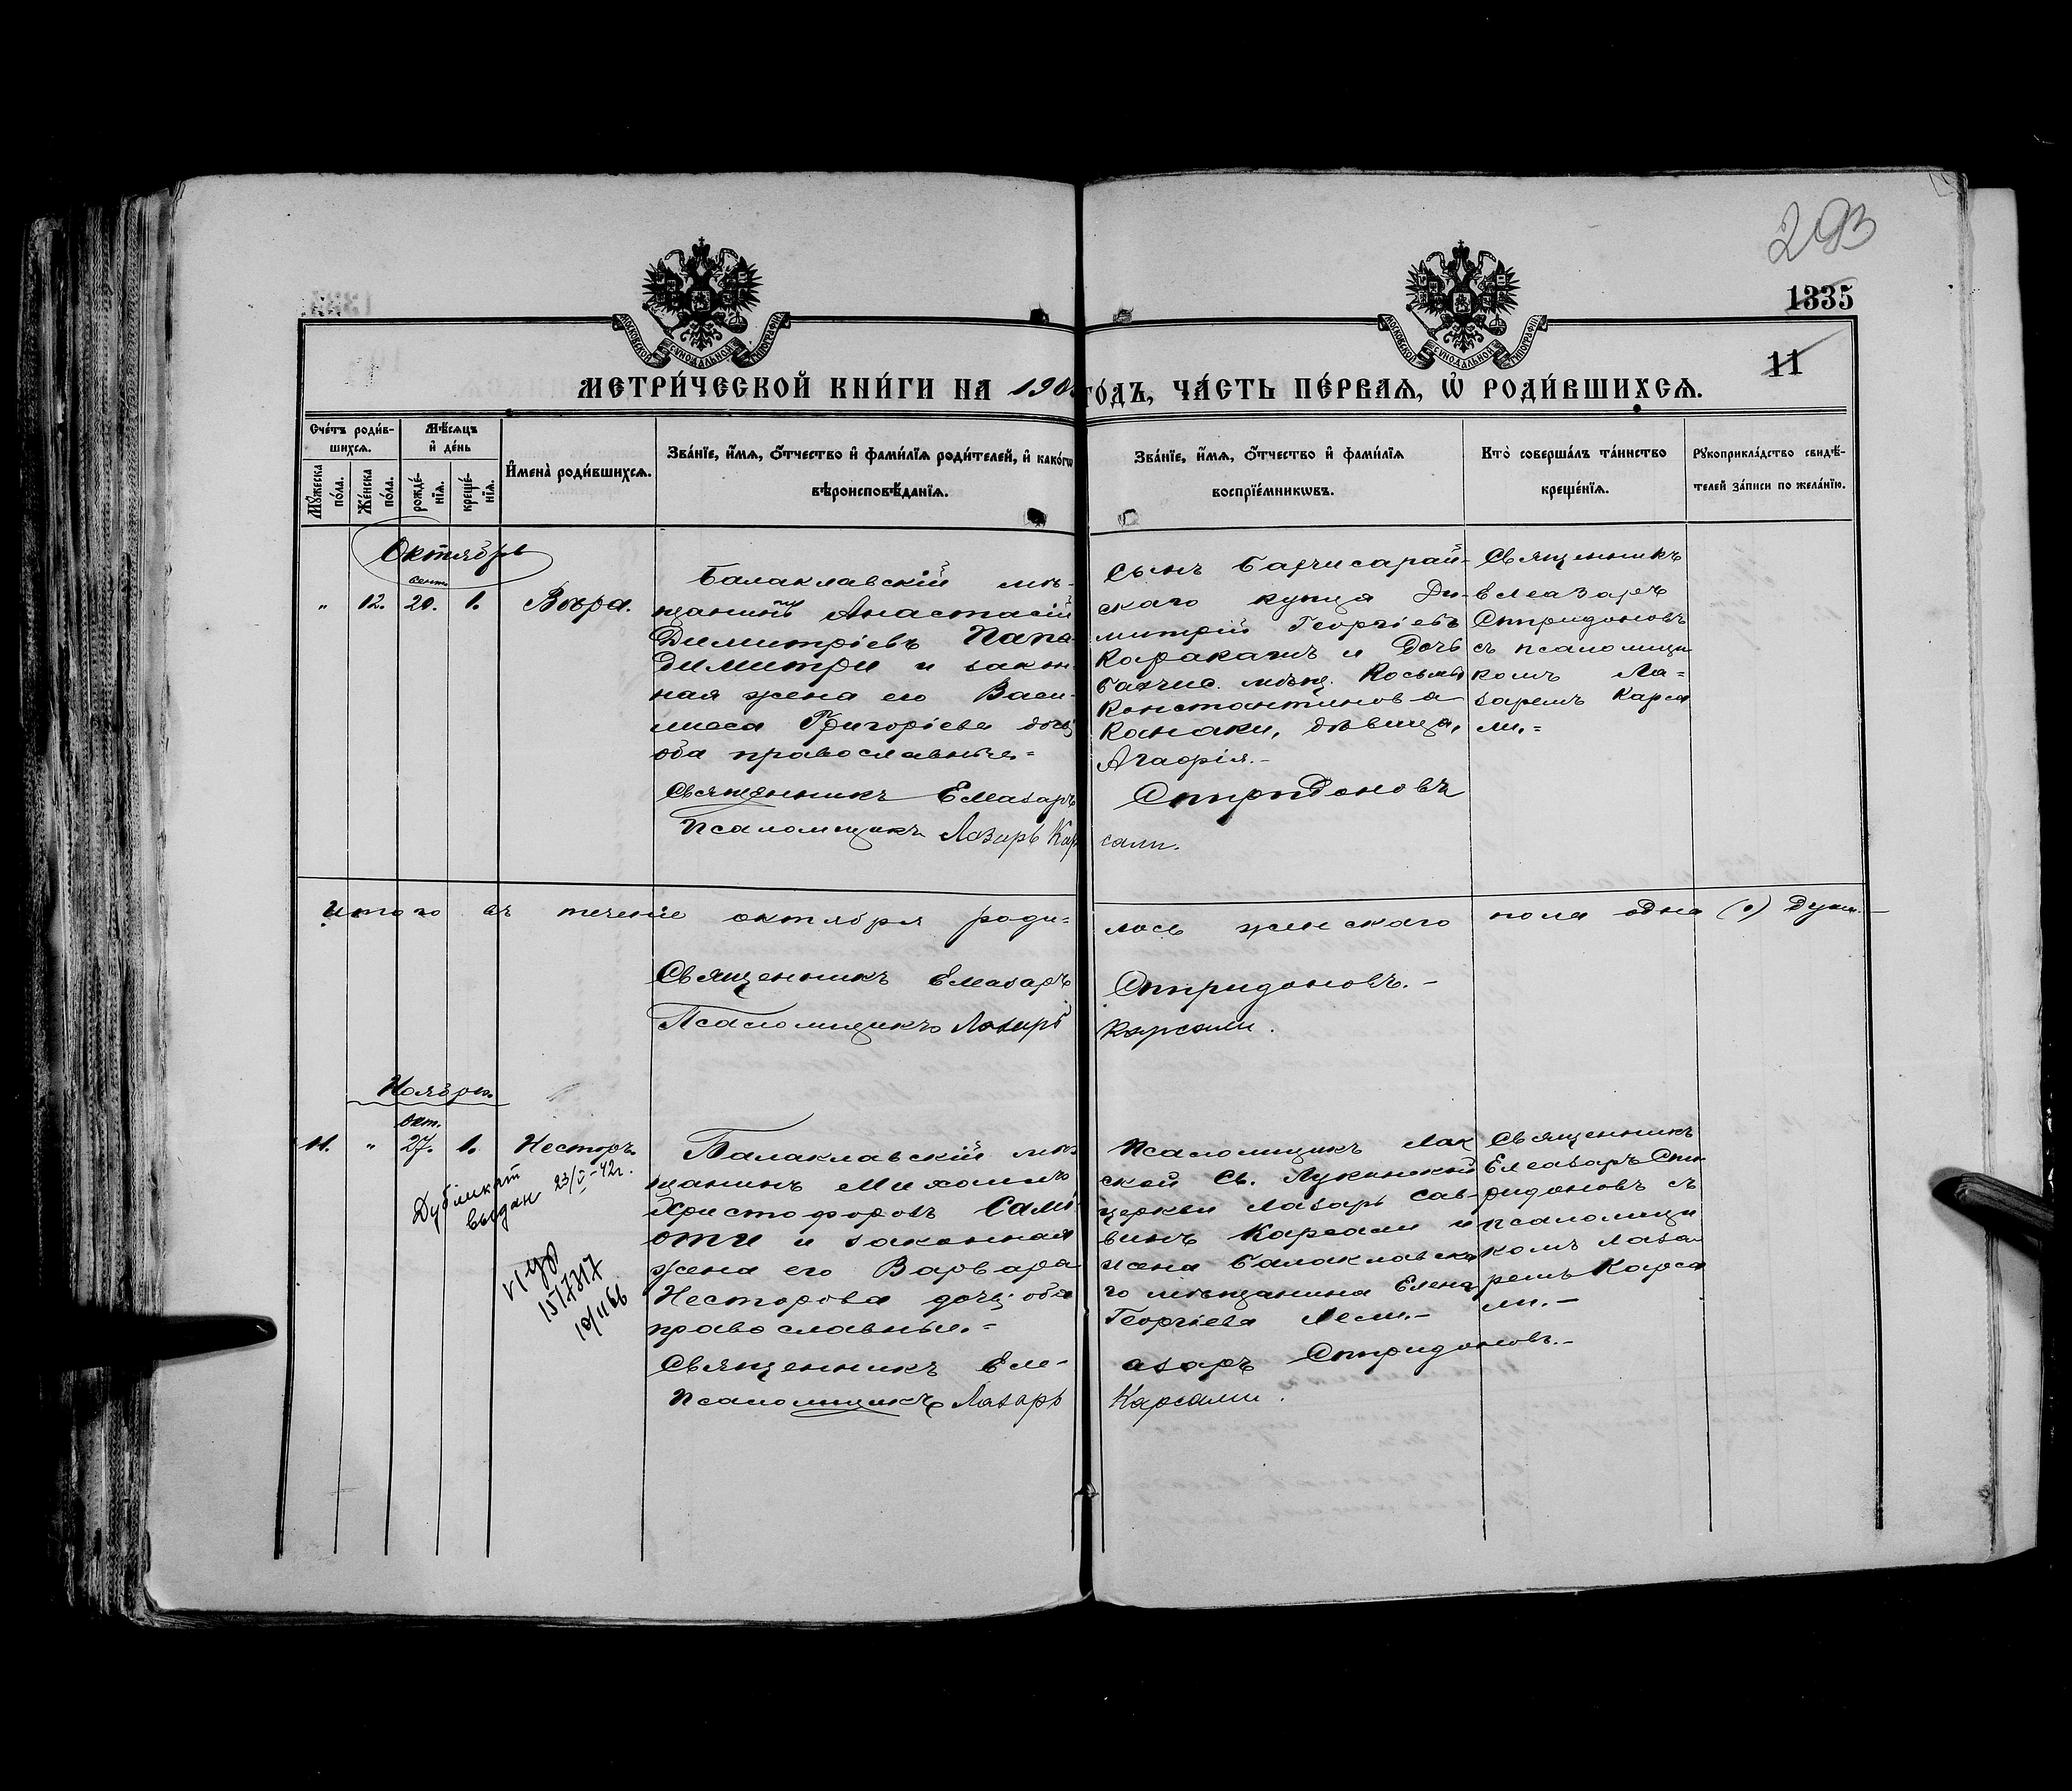 293
1335
11
МОСКОВСКОЙ СУНОДАЛЬНОЙ ТИПОГРАФІИ
МОСКОВСКОЙ СУНОДАЛЬНОЙ ТИПОГРАФІИ
МЕТРИ́ЧЕСКОЙ КНИ́ГИ НА 190 ГО́ДЪ, ЧА́СТЬ ПЕ́РВАѦ, Ѡ҆ РОДИ́ВШИХСѦ.
Сче́тъ роди́в-
шихсѧ.
Мꙋ́жеска по́ла.
Же́нска по́ла.
Мѣ́сѧцъ
и҆ де́нь
рожде́-
нїѧ.
креще́-
нїѧ.
И҆мена̀ роди́вшихсѧ.
Зва́нїе, и҆́мѧ, ѻ҆́тчество и҆ фами́лїѧ роди́телей, и҆ како́гѡ
вѣроисповѣ́данїѧ.
Зва́нїе, и҆́мѧ, ѻ҆́тчество и҆ фами́лїѧ
воспрїе́мникѡвъ.
Кто̀ соверша́лъ та́инство
креще́нїѧ.
Рꙋкоприкла́дство свидѣ́-
телей за́писи по жела́нїю.
Октябрь
сент.
" 12. 20. 1. Вѣра.
Балаклавскій мѣ-
щанинъ Анастасій
Димитріевъ Папа-
димитри и закон-
ная жена его Васи-
лиса Григоріева дочь
оба православные.=
Священникъ Елеазаръ
Псаломщикъ Лазарь Кар
Сынъ Бахчисарай-
скаго купца Ди-
митрій Георгіевъ
Каракашъ и Дочь
Бахчис. мѣщ. Косьмы
Константинова
Канаки, дѣвица,
Агафія.-
Спиридоновъ
сали.
Священникъ
Елеазаръ
Спиридоновъ
съ псаломщи
комъ Ла=
заремъ Карса
ли.=
Итого въ теченіе октября роди= лось женскаго пола одна (1) душа.
Священникъ Елеазаръ Спиридоновъ.-
Псаломщикъ Лазарь Карсали.
Ноябрь.
окт.
11. " 27. 1. Несторъ.
Дублікат
выдан 23/V-42г.
15/7317
10/II 66
Балаклавскій мѣ-
щанинъ Михаилъ
Христофоровъ Сами-
оти и законная
жена его Варвара
Несторова дочь; оба
православные.=
Священникъ Еле-
Псаломщикъ Лазарь
Псаломщикъ Лак
ской Св. Лукинской
церкви Лазарь Сав-
винъ Карсали и
жена Балаклавска
го мѣщанина Елена
Георгіева Лели.-
азаръ Спиридоновъ.-
Карсали.
Священникъ
Елеазаръ Спи-
ридоновъ съ
псаломщи
комъ Лаза-
ремъ Карса
ли.-